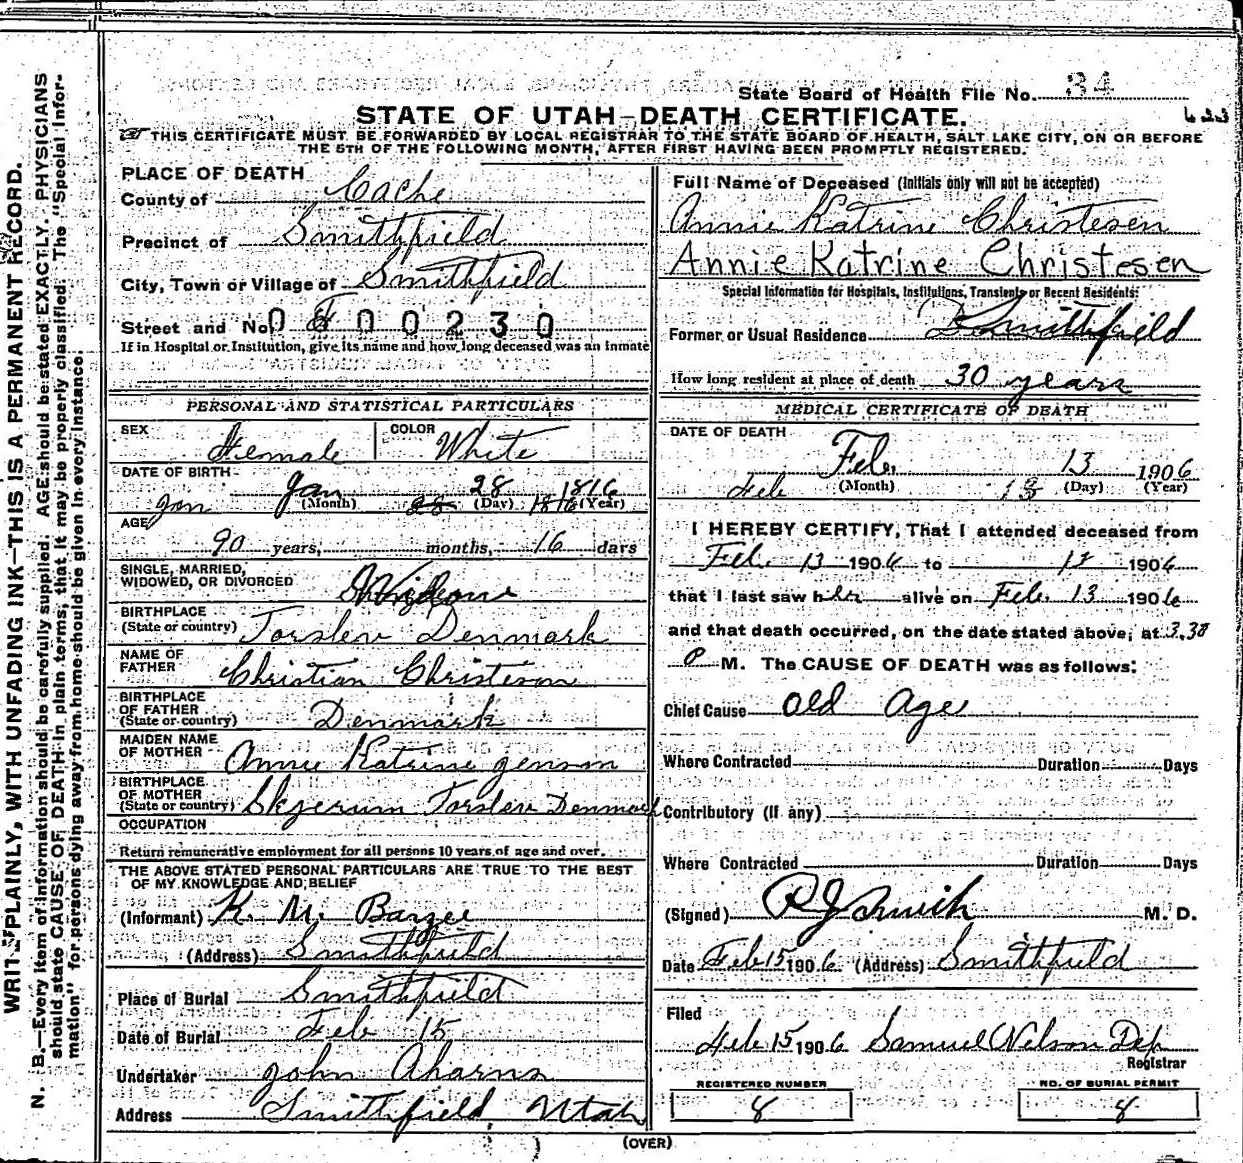 State Board of Health File No. 34
STATE OF UTAH—DEATH CERTIFICATE.
THIS CERTIFICATE MUST BE FORWARDED BY LOCAL REGISTRAR TO THE STATE BOARD OF HEALTH, SALT LAKE CITY, ON OR BEFORE
THE 5TH OF THE FOLLOWING MONTH, AFTER FIRST HAVING BEEN PROMPTLY REGISTERED.
N. B.—Every item of information should be carefully supplied. AGE should be stated EXACTLY. PHYSICIANS
should state CAUSE OF DEATH in plain terms, that it may be properly classified. The "Special Infor-
mation" for persons dying away from home should be given in every instance.
PLAINLY, WITH UNFADING INK—THIS IS A PERMANENT RECORD.
PLACE OF DEATH
County of Cache
Precinct of Smithfield
City, Town or Village of Smithfield
Street and No. 0 00230
If in Hospital or Institution, give its name and how long deceased was an inmate
PERSONAL AND STATISTICAL PARTICULARS
SEX Female COLOR White
DATE OF BIRTH Jan 28 1816
(Month) (Day) (Year)
Jan 28 1816
AGE 90 years, months, 16 days
SINGLE, MARRIED,
WIDOWED, OR DIVORCED Widow
BIRTHPLACE
(State or country) Torslev Denmark
NAME OF
FATHER Christian Christeson
BIRTHPLACE
OF FATHER
(State or country) Denmark
MAIDEN NAME
OF MOTHER Annie Katrine Jenson
BIRTHPLACE
OF MOTHER
(State or country) Skjerum Torslev Denmark
OCCUPATION
Return remunerative employment for all persons 10 years of age and over.
THE ABOVE STATED PERSONAL PARTICULARS ARE TRUE TO THE BEST
OF MY KNOWLEDGE AND BELIEF
(Informant) K. M. Barzee
(Address) Smithfield
Place of Burial Smithfield
Date of Burial Feb 15
Undertaker John Aharns
Address Smithfield, Utah
Full Name of Deceased (Initials only will not be accepted)
Annie Katrine Christesen
Annie Katrine Christesen
Special Information for Hospitals, Institutions, Transients or Recent Residents:
Former or Usual Residence Smithfield
How long resident at place of death 30 years
MEDICAL CERTIFICATE OF DEATH
DATE OF DEATH
Feb. 13 1906
Feb (Month) 13 (Day) (Year)
I HEREBY CERTIFY, That I attended deceased from
Feb. 13 1906 to 13 1906
that I last saw her alive on Feb. 13 1906
and that death occurred, on the date stated above, at 3.30
P M. The CAUSE OF DEATH was as follows:
Chief Cause Old Age
Where Contracted Duration Days
Contributory (If any)
Where Contracted Duration Days
(Signed) R J Smith M. D.
Date Feb 15 1906 (Address) Smithfield
Filed
Feb 15 1906 Samuel Nelson Dep
Registrar
REGISTERED NUMBER NO. OF BURIAL PERMIT
8 8
(OVER)